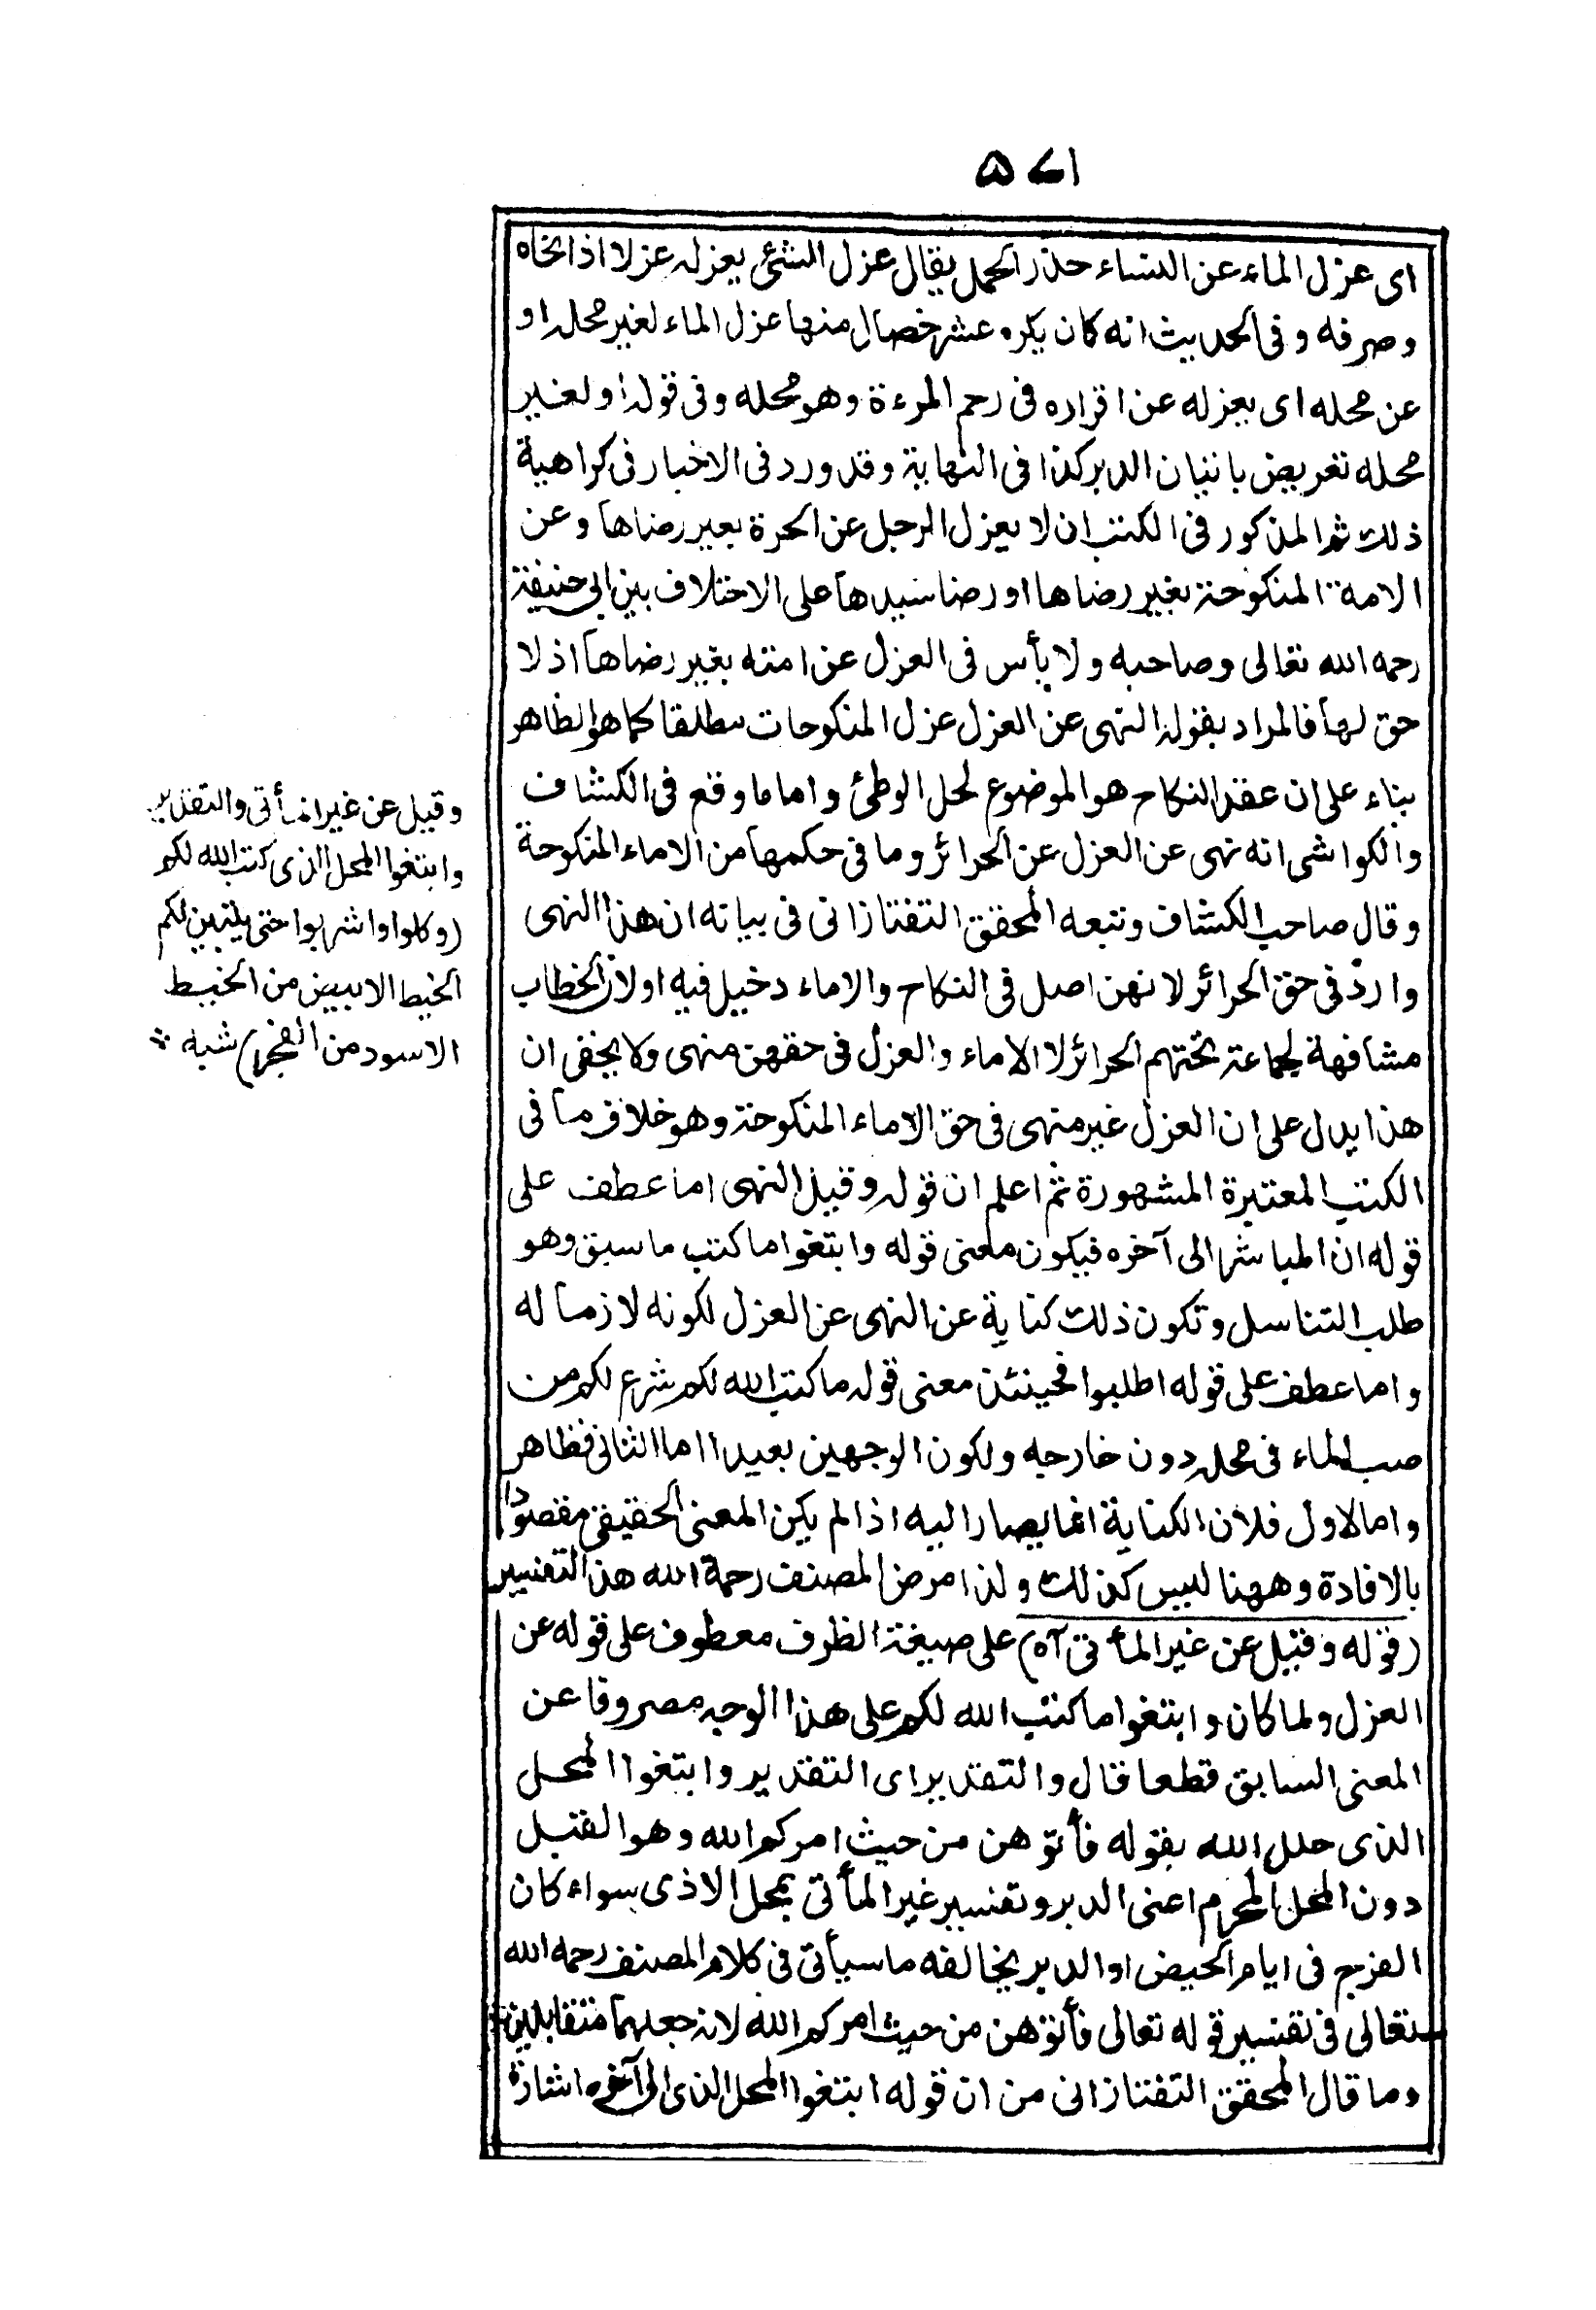 ٥٧١
اى عزل الماء عن النساء حذر الحمل يقال عزل الشئ يعزله عزلا اذا نحاه
وصرفه وفى الحديث انه كان يكره عشر خصال منها عزل الماء لغير محله او
عن محله اى يعزله عن اقراره فى رحم المرءة وهو محله وفى قوله او لغير
محله تعريض باتيان الدبر كذا فى النهاية وقد ورد فى الاخبار فى كراهية
ذلك ثم المذكور فى الكتب ان لا يعزل الرجل عن الحرة بغير رضاها وعن
الامة المنكوحة بغير رضاها او رضا سيدها على الاختلاف بين ابى حنيفة
رحمه الله تعالى وصاحبه ولا بأس فى العزل عن امته بغير رضاها اذ لا
حق لها فالمراد بقوله النهى عن العزل عزل المنكوحات مطلقا كما هو الظاهر
بناء على ان عقد النكاح هو الموضوع لحل الوطئ واما ما وقع فى الكشاف
والكواشى انه نهى عن العزل عن الحرائر وما فى حكمها من الاماء المنكوحة
وقال صاحب الكشاف وتبعه المحقق التفتازانى فى بيانه ان هذا النهى
وارد فى حق الحرائر لانهن اصل فى النكاح والاماء دخيل فيه اولان الخطاب
مشافهة لجماعة تحتهم الحرائر لا الاماء والعزل فى حقهن منهى ولا يخفى ان
هذا يدل على ان العزل غير منهى فى حق الاماء المنكوحة وهو خلاف ما فى
الكتب المعتبرة المشهورة ثم اعلم ان قوله وقيل النهى اما عطف على
قوله ان المباشر الى آخره فيكون معنى قوله وابتغوا ما كتب ما سبق وهو
طلب التناسل وتكون ذلك كناية عن النهى عن العزل لكونه لازما له
واما عطف على قوله اطلبوا فحينئذ معنى قوله ما كتب الله لكم شرع لكم من
صب الماء فى محله دون خارجه ولكون الوجهين بعيدا اما الثانى فظاهر
واما الاول فلان الكناية انما يصار اليه اذا لم يكن المعنى الحقيقى مقصودا
بالافادة وههنا ليس كذلك ولذا مرض المصنف رحمة الله هذا التفسير
(قوله وقيل عن غير المأتى آه) على صيغة الظرف معطوف على قوله عن
العزل ولما كان وابتغوا ما كتب الله لكم على هذا الوجه مصروفا عن
المعنى السابق قطعا قال والتقدير اى التقدير وابتغوا المحل
الذى حلل الله بقوله فأتوهن من حيث امركم الله وهو القبل
دون المحل المحرم اعنى الدبر وتفسير غير المأتى بمحل الاذى سواء كان
الفرج فى ايام الحيض او الدبر يخالفه ما سيأتى فى كلام المصنف رحمه الله
تعالى فى تفسير قوله تعالى فأتوهن من حيث امركم الله لانه جعلهما متقابلين
وما قال المحقق التفتازانى من ان قوله ابتغوا المحل الذى الى آخره اشارة
وقيل عن غير المأتى والتقدير
وابتغوا المحل الذى كتب الله لكم
(وكلوا واشربوا حتى يتبين لكم
الخيط الابيض من الخيط
الاسود من الفجر) شبه